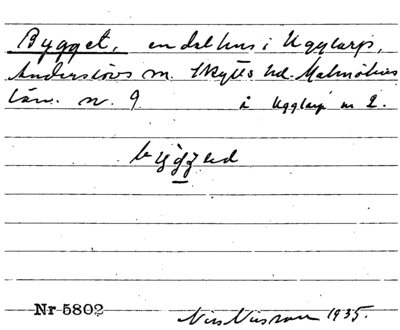 Bygget, en del hus i Ugglarp,
Anderslövs sn. Skytts hd. Malmöhus
län. nr. 9 å Ugglarp nr 2.
byggəd
Nr 5802
Nils Nilsson 1935.